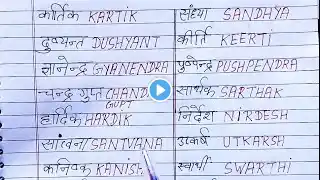 कार्तिक KARTIK
दुष्यन्त DUSHYANT
ज्ञानेन्द्र GYANENDRA
चन्द्र गुप्त CHAND GUPT
हार्दिक HARDIK
सांत्वना SANTVANA
कनिष्क KANISH
संध्या SANDHYA
कीर्ति KEERTI
पुष्पेन्द्र PUSHPENDRA
सार्थक SARTHAK
निर्देश NIRDESH
उत्कर्ष UTKARSH
स्वार्थी SWARTHI